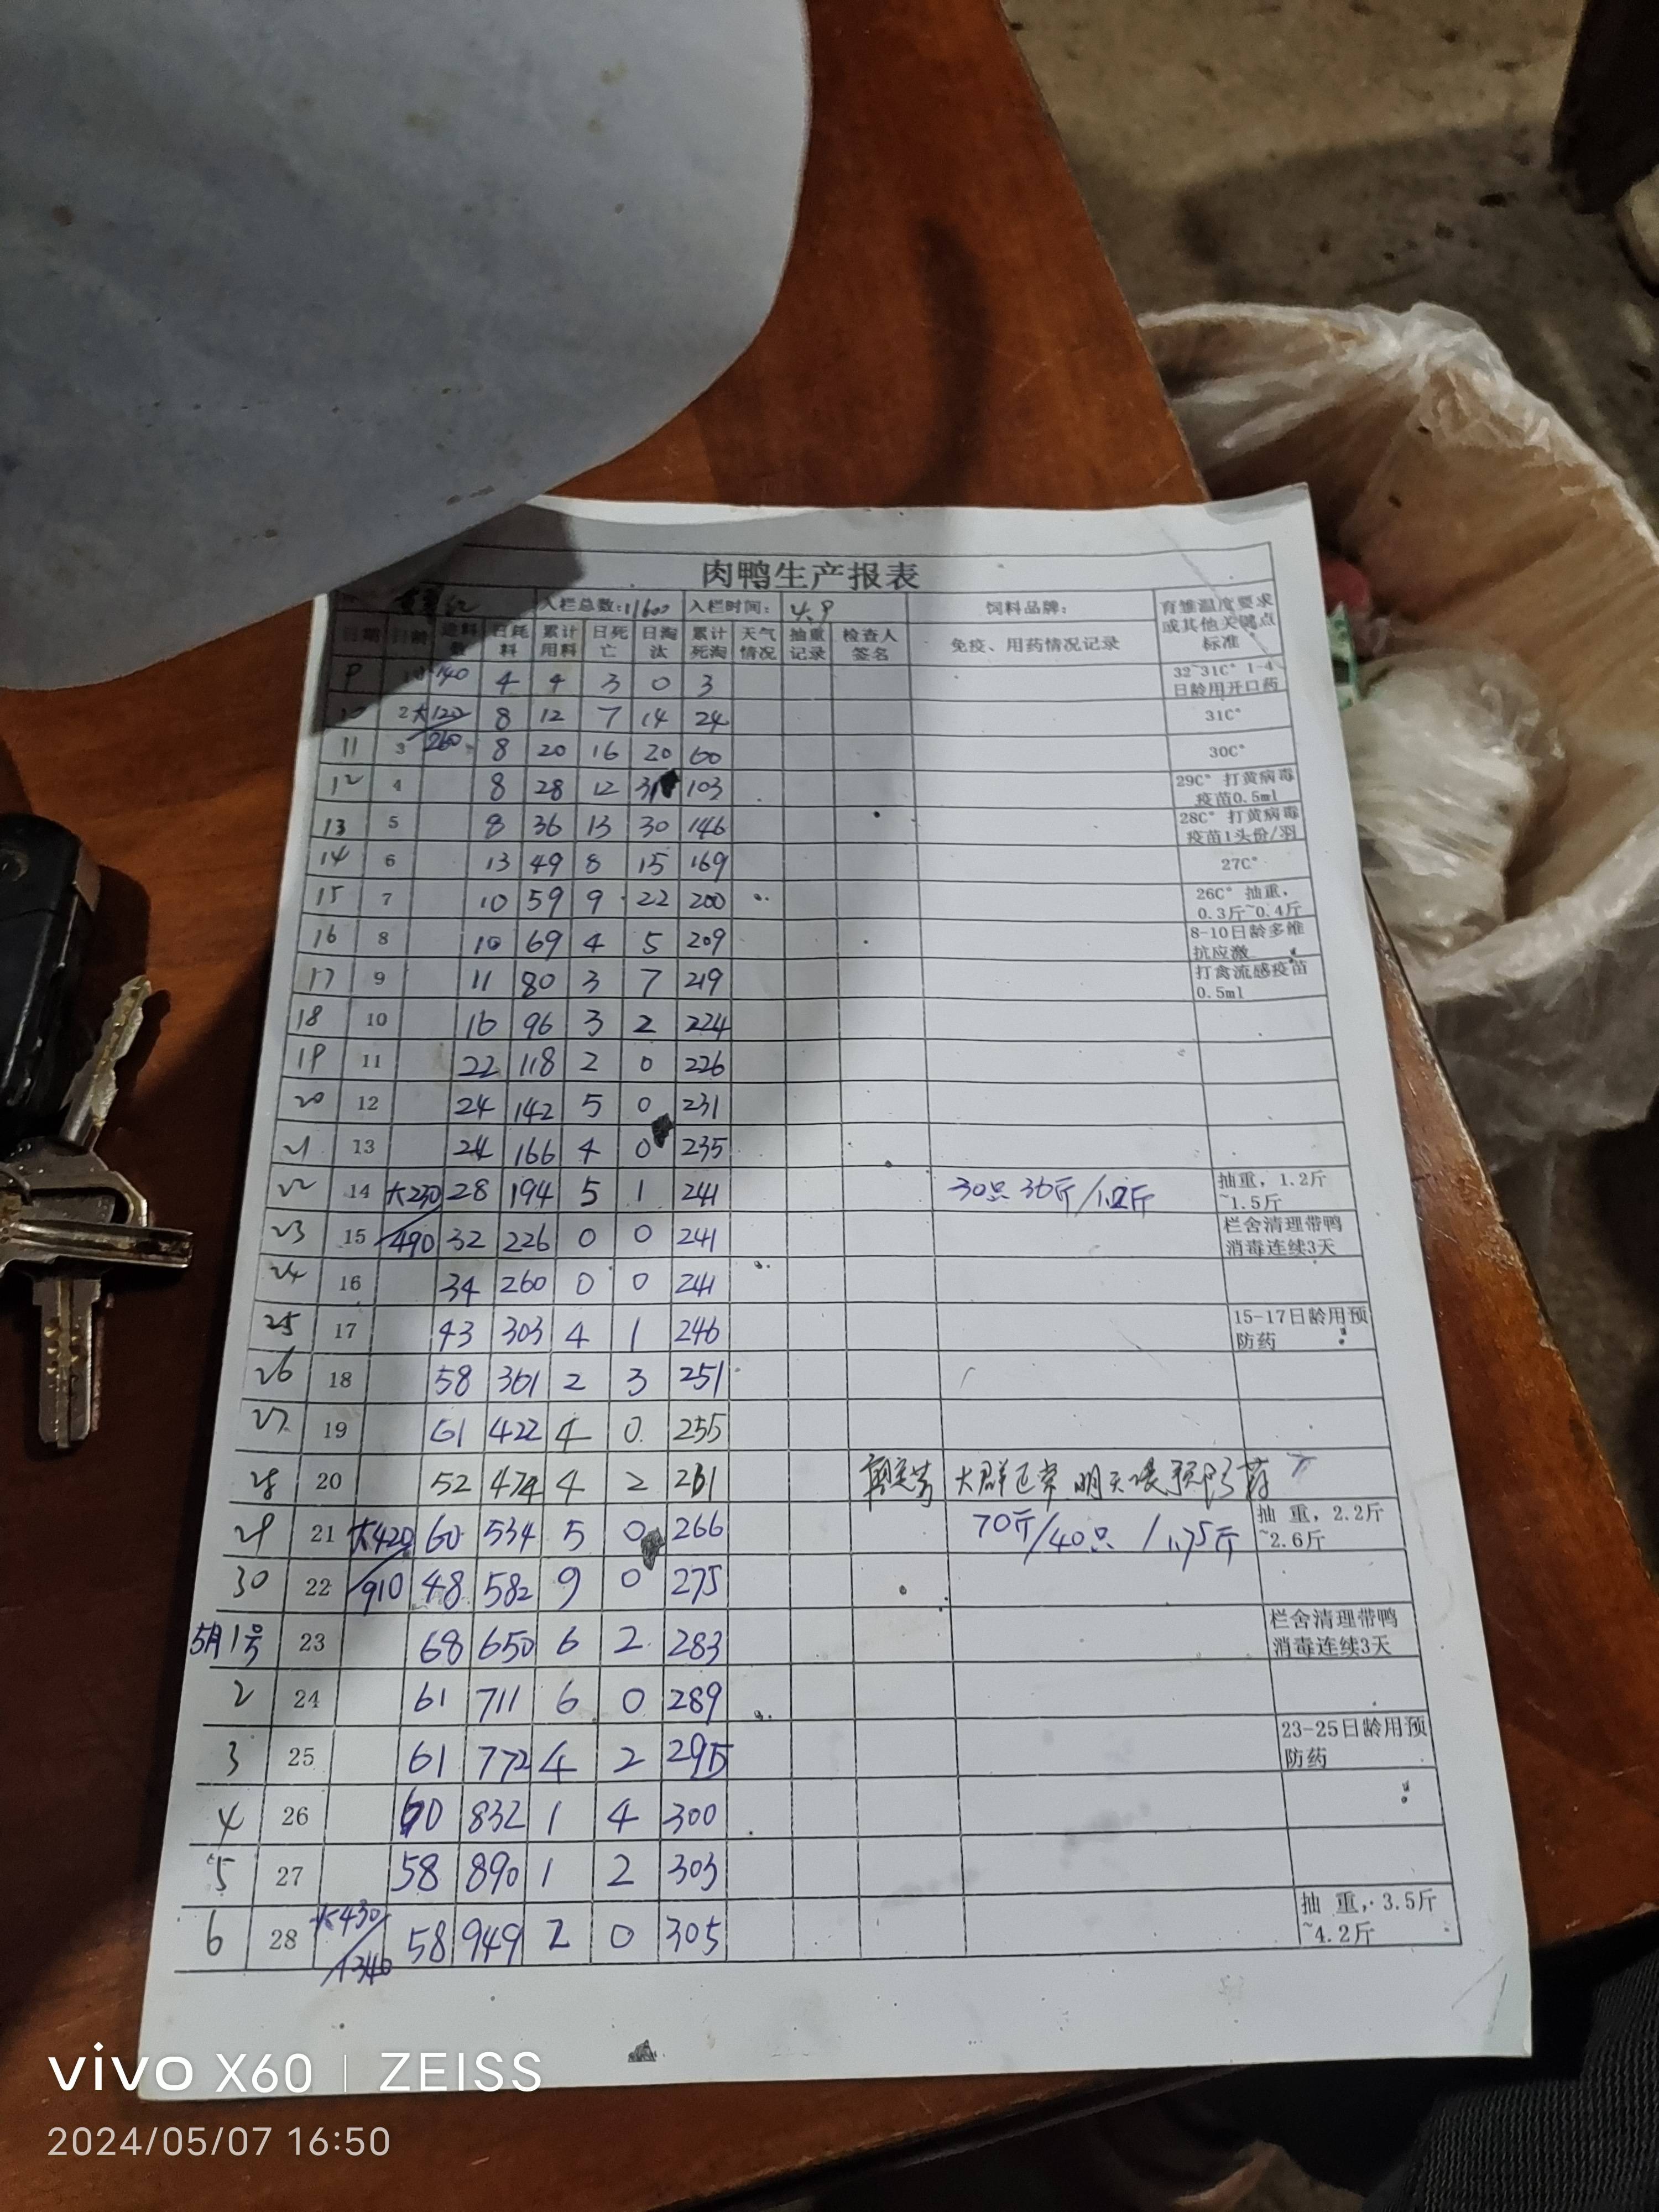 肉鸭生产报表
入栏总数:11600 入栏时间: 4.9 饲料品牌: 育雏温度要求或其他关键点标准
日期 日龄 进料数 日耗料 累计用料 日死亡 日淘汰 累计死淘 天气情况 抽重记录 检查人签名 免疫、用药情况记录
9 140 4 4 3 0 3 32~31C° 1-4日龄用开口药
10 2 大120 8 12 7 14 24 31C°
11 3 260 8 20 16 20 60 30C°
12 4 8 28 12 31 103 29C° 打黄病毒疫苗0.5ml
13 5 8 36 13 30 146 28C° 打黄病毒疫苗1头份/羽
14 6 13 49 8 15 169 27C°
15 7 10 59 9 22 200 26C° 抽重，0.3斤~0.4斤
16 8 10 69 4 5 209 8-10日龄多维抗应激
17 9 11 80 3 7 219 打禽流感疫苗0.5ml
18 10 16 96 3 2 224
19 11 22 118 2 0 226
20 12 24 142 5 0 231
21 13 24 166 4 0 235
22 14 大230 28 194 5 1 241 30只 36斤/1.2斤 抽重，1.2斤~1.5斤
23 15 490 32 226 0 0 241 栏舍清理带鸭消毒连续3天
24 16 34 260 0 0 241
25 17 43 303 4 1 246 15-17日龄用预防药
26 18 58 361 2 3 251
27 19 61 422 4 0 255
28 20 52 474 4 2 261 大群正常 明天喂预防药
29 21 大420 60 534 5 0 266 70斤/40只 /1.75斤 抽 重，2.2斤~2.6斤
30 22 910 48 582 9 0 275
5月1号 23 68 650 6 2 283 栏舍清理带鸭消毒连续3天
2 24 61 711 6 0 289
3 25 61 772 4 2 295 23-25日龄用预防药
4 26 60 832 1 4 300
5 27 58 890 1 2 303
6 28 大430 /1340 58 949 2 0 305 抽 重，3.5斤~4.2斤
vivo X60 | ZEISS
2024/05/07 16:50